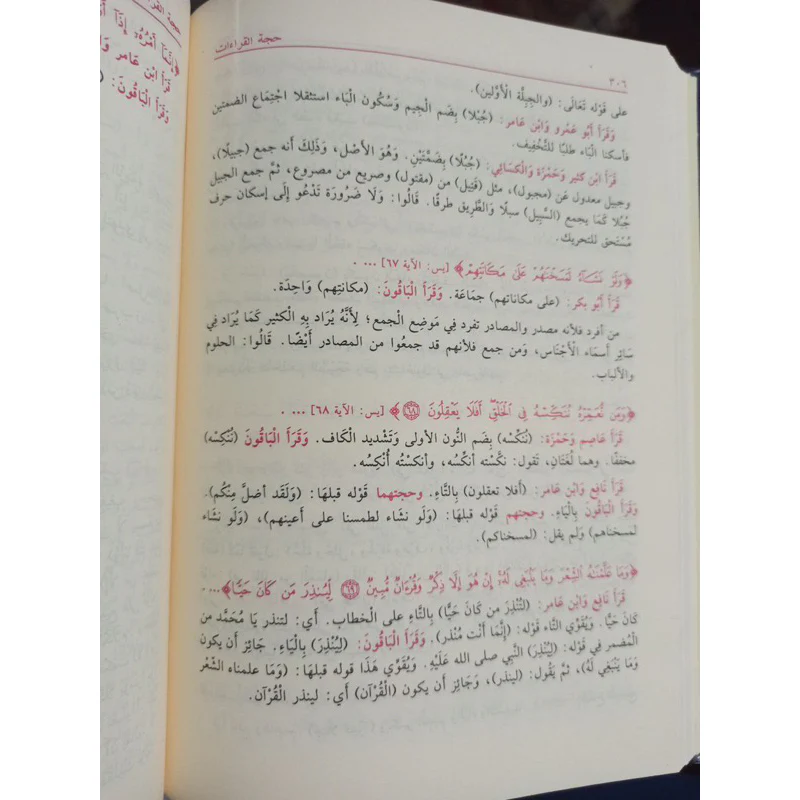 حجة القراءات
٣٠٦
على قَوْله تَعَالَى: (والجِبِلَّة الْأَوَّلين).
وَقَرَأَ أَبُو عَمْرو وَابْن عَامر: (جُبْلا) بِضَم الْجِيم وَسُكُون الْبَاء استثقلا اجْتِمَاع الضمتين
فأسكنا الْبَاء طلبًا للتَّخْفِيف.
قَرَأَ ابْن كثير وَحَمْزَة وَالْكسَائِيّ: (جُبُلًا) بِضَمَّتَيْنِ. وَهُوَ الأَصْل، وَذَلِكَ أنه جمع (جبيلا)،
وجبيل معدول عَن (مجبول)، مثل (قَتِيل) من (مقتول) وصريع من مصروع، ثمَّ جمع الجبيل
جُبُلا كَمَا يجمع (السَّبِيل) سبلا وَالطَّرِيق طرقًا. قَالُوا: وَلَا ضَرُورَة تَدْعُو إِلَى إسكان حرف
مُسْتَحق للتحريك.
﴿وَلَوْ نَشَآءُ لَمَسَخْنَٰهُمْ عَلَىٰ مَكَانَتِهِمْ﴾ [يس: الآية ٦٧] ... .
قَرَأَ أَبُو بكر: (على مكاناتهم) جمَاعَة. وَقَرَأَ الْبَاقُونَ: (مكانتِهم) وَاحِدَة.
من أفرد فلأنه مصدر والمصادر تفرد فِي مَوضِع الجمع؛ لِأَنَّهُ يُرَاد بِهِ الْكثير كَمَا يُرَاد فِي
سَائِر أَسمَاء الْأَجْنَاس، وَمن جمع فلأنهم قد جمعُوا من المصادر أَيْضًا. قَالُوا: الحلوم
والألباب.
﴿وَمَن نُّعَمِّرْهُ نُنَكِّسْهُ فِى ٱلْخَلْقِۖ أَفَلَا يَعْقِلُونَ ٦٨﴾ [يس: الآية ٦٨] ... .
قَرَأَ عَاصِم وَحَمْزَة: (نُنَكِّسْه) بِضَم النُّون الأولى وَتَشْديد الْكَاف. وَقَرَأَ الْبَاقُونَ (نَنْكِسْه)
مخففًا. وهما لُغَتَانِ، تَقول: نكَّسْته أنكِّسُه، وأنكستُه أُنْكِسُه.
قَرَأَ نَافِع وَابْن عَامر: (أفلا تعقلون) بِالتَّاءِ. وحجتهما قَوْله قبلهَا: (وَلَقَد أضلَّ مِنْكُم).
وَقَرَأَ الْبَاقُونَ بِالْيَاءِ. وحجتهم قَوْله قبلهَا: (وَلَو نشَاء لطمسنا على أَعينهم)، (وَلَو نشَاء
لمسخناهم) وَلم يقل: (لمسخناكم).
﴿وَمَا عَلَّمْنَٰهُ ٱلشِّعْرَ وَمَا يَنۢبَغِى لَهُۥٓۚ إِنْ هُوَ إِلَّا ذِكْرٌ وَقُرْءَانٌ مُّبِينٌ ٦٩ لِّيُنذِرَ مَن كَانَ حَيًّا﴾... .
قَرَأَ نَافِع وَابْن عَامر: (لتُنْذِر من كَانَ حَيًّا) بِالتَّاءِ على الْخطاب. أَي: لتنذر يَا مُحَمَّد من
كَانَ حَيًّا. وَيُقَوِّي التَّاء قَوْله: (إِنَّمَا أَنْت مُنْذر). وَقَرَأَ الْبَاقُونَ: (ليُنْذِرَ) بِالْيَاءِ. جَائِز أَن يكون
الْمُضمر فِي قَوْله: (ليُنْذِرَ) النَّبِي صلى الله عَلَيْهِ. وَيُقَوِّي هَذَا قَوْله قبلهَا: (وَمَا علمناه الشّعْر
وَمَا يَنْبَغِي لَهُ)، ثمَّ يَقُول: (لينذر)، وَجَائِز أَن يكون (الْقُرْآن) أَي: لينذر الْقُرْآن.
حجة القرا
﴿إِنَّمَآ أَمْرُهُۥٓ إِذَآ
قَرَأَ ابْن عَامر
وَقَرَأَ الْبَاقُونَ: